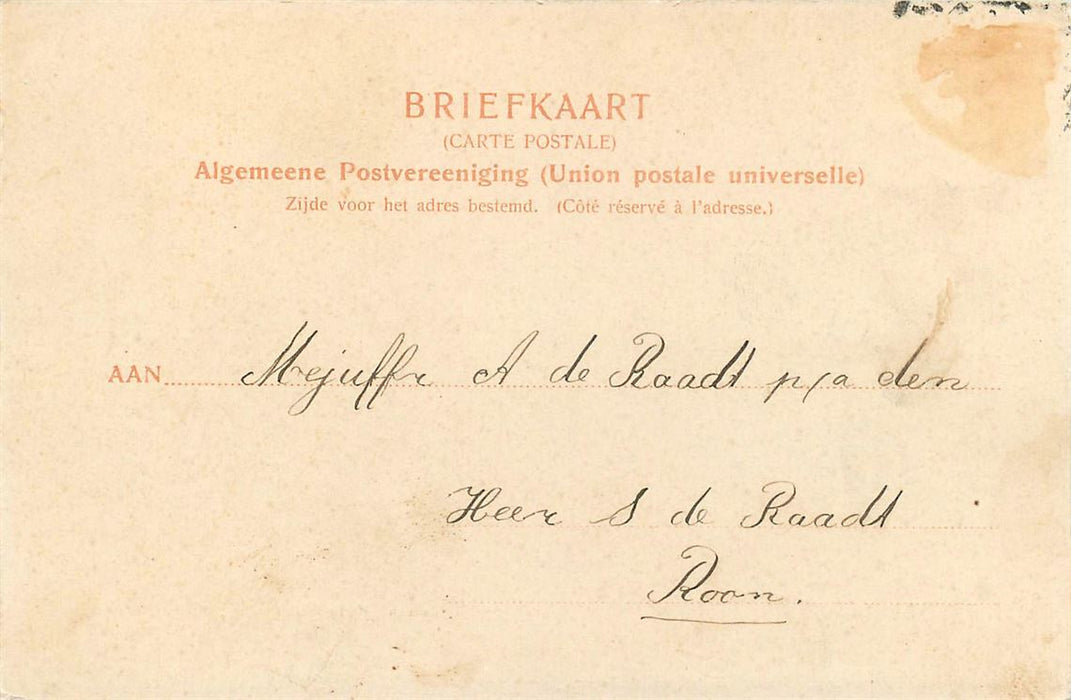 BRIEFKAART
(CARTE POSTALE)
Algemeene Postvereeniging (Union postale universelle)
Zijde voor het adres bestemd. (Côté réservé à l'adresse.)
AAN Mejuffr A de Raadt p/a den
Heer S de Raadt
Roon.